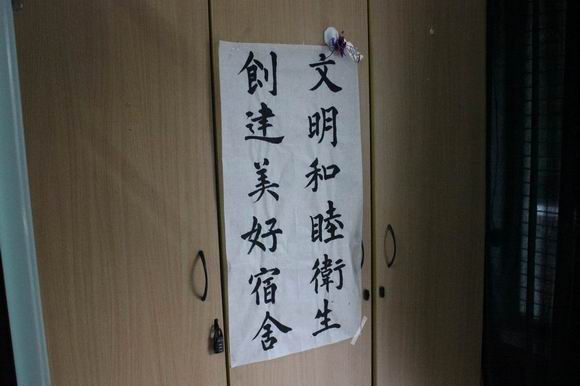 文明和睦衛生
創建美好宿舍